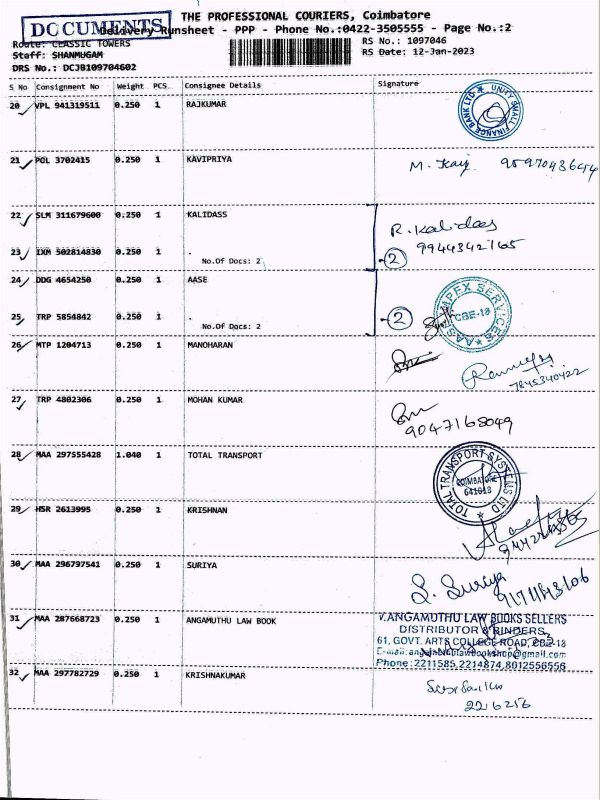 DOCUMENTS
THE PROFESSIONAL COURIERS, Coimbatore
Delivery Runsheet - PPP - Phone No.:0422-3505555 - Page No.:2
Route: CLASSIC TOWERS
RS No.: 1097046
Staff: SHANMUGAM
RS Date: 12-Jan-2023
DRS No.: DCJB109704602
S No Consignment No Weight PCS Consignee Details Signature
20 VPL 941319511 0.250 1 RAJKUMAR
UNITY SMALL FINANCE BANK LTD
21 POL 3702415 0.250 1 KAVIPRIYA
22 SLM 311679600 0.250 1 KALIDASS
R. Kalidass
9944342165
23 IXM 502814830 0.250 1 .
No.Of Docs: 2
2
24 DDG 4654250 0.250 1 AASE
AASE IMPEX SERVICES
CBE-18
2
25 TRP 5854842 0.250 1 .
No.Of Docs: 2
26 MTP 1204713 0.250 1 MANOHARAN
7845340422
27 TRP 4802306 0.250 1 MOHAN KUMAR
9047165049
28 MAA 297555428 1.040 1 TOTAL TRANSPORT
TOTAL TRANSPORT SYSTEMS LTD
COIMBATORE
641018
29 HSR 2613995 0.250 1 KRISHNAN
30 MAA 296797541 0.250 1 SURIYA
S. Suriya
31 MAA 287668723 0.250 1 ANGAMUTHU LAW BOOK
V.ANGAMUTHU LAW BOOKS SELLERS
DISTRIBUTOR & BINDERS
61, GOVT. ARTS COLLEGE ROAD, CBE-18
E-mail: angamuthulawbookshop@gmail.com
Phone: 2211585, 2214874, 8012556556
32 MAA 297782729 0.250 1 KRISHNAKUMAR
2216256